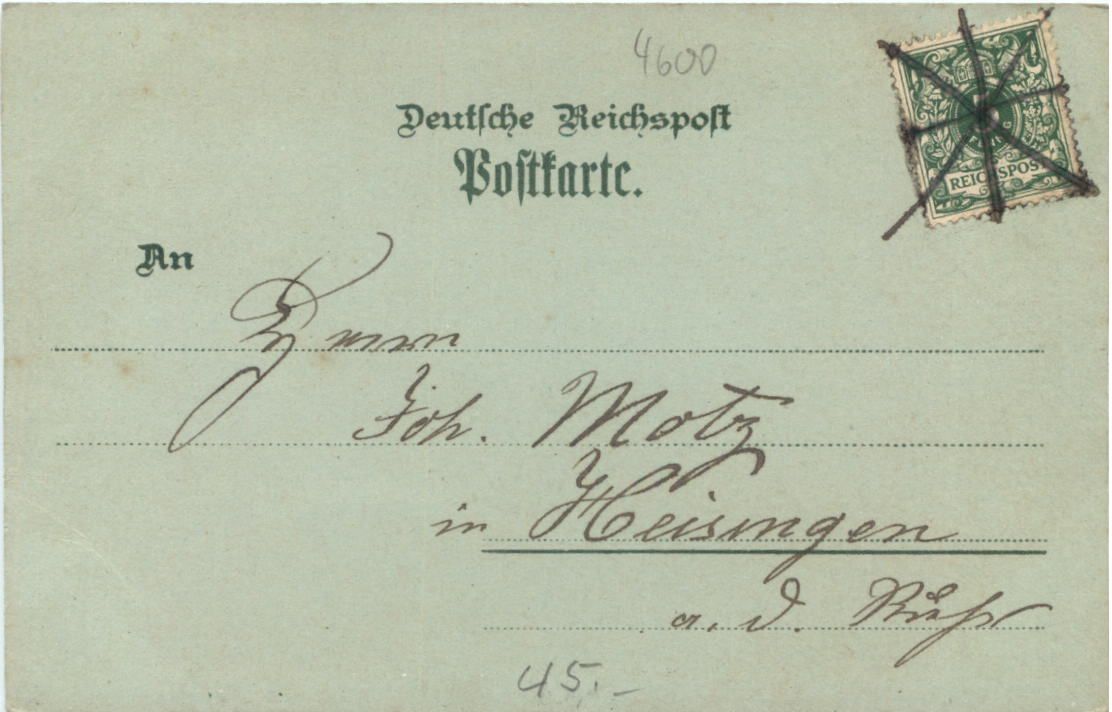 4600
Deutsche Reichspost
Postkarte.
REICHSPOST
An
Herrn
Joh. Motz
in Heisingen
a. d. Ruhr
45.-